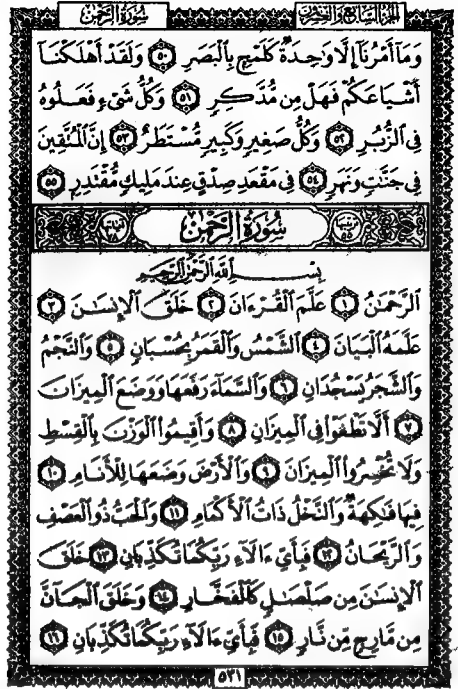 الجزء السابع والعشرون
سُورَةُ الرَّحْمٰن
وَمَآ أَمْرُنَآ إِلَّا وَٰحِدَةٌ كَلَمْحٍۭ بِٱلْبَصَرِ ٥٠ وَلَقَدْ أَهْلَكْنَآ
أَشْيَاعَكُمْ فَهَلْ مِن مُّدَّكِرٍ ٥١ وَكُلُّ شَىْءٍ فَعَلُوهُ
فِى ٱلزُّبُرِ ٥٢ وَكُلُّ صَغِيرٍ وَكَبِيرٍ مُّسْتَطَرٌ ٥٣ إِنَّ ٱلْمُتَّقِينَ
فِى جَنَّٰتٍ وَنَهَرٍ ٥٤ فِى مَقْعَدِ صِدْقٍ عِندَ مَلِيكٍ مُّقْتَدِرٍۭ ٥٥
سُورَةُ الرَّحْمٰن
بِسْمِ ٱللَّهِ ٱلرَّحْمَٰنِ ٱلرَّحِيمِ
ٱلرَّحْمَٰنُ ١ عَلَّمَ ٱلْقُرْءَانَ ٢ خَلَقَ ٱلْإِنسَٰنَ ٣
عَلَّمَهُ ٱلْبَيَانَ ٤ ٱلشَّمْسُ وَٱلْقَمَرُ بِحُسْبَانٍ ٥ وَٱلنَّجْمُ
وَٱلشَّجَرُ يَسْجُدَانِ ٦ وَٱلسَّمَآءَ رَفَعَهَا وَوَضَعَ ٱلْمِيزَانَ
٧ أَلَّا تَطْغَوْا۟ فِى ٱلْمِيزَانِ ٨ وَأَقِيمُوا۟ ٱلْوَزْنَ بِٱلْقِسْطِ
وَلَا تُخْسِرُوا۟ ٱلْمِيزَانَ ٩ وَٱلْأَرْضَ وَضَعَهَا لِلْأَنَامِ ١٠
فِيهَا فَٰكِهَةٌ وَٱلنَّخْلُ ذَاتُ ٱلْأَكْمَامِ ١١ وَٱلْحَبُّ ذُو ٱلْعَصْفِ
وَٱلرَّيْحَانُ ١٢ فَبِأَىِّ ءَالَآءِ رَبِّكُمَا تُكَذِّبَانِ ١٣ خَلَقَ
ٱلْإِنسَٰنَ مِن صَلْصَٰلٍ كَٱلْفَخَّارِ ١٤ وَخَلَقَ ٱلْجَآنَّ
مِن مَّارِجٍ مِّن نَّارٍ ١٥ فَبِأَىِّ ءَالَآءِ رَبِّكُمَا تُكَذِّبَانِ ١٦
٥٣١